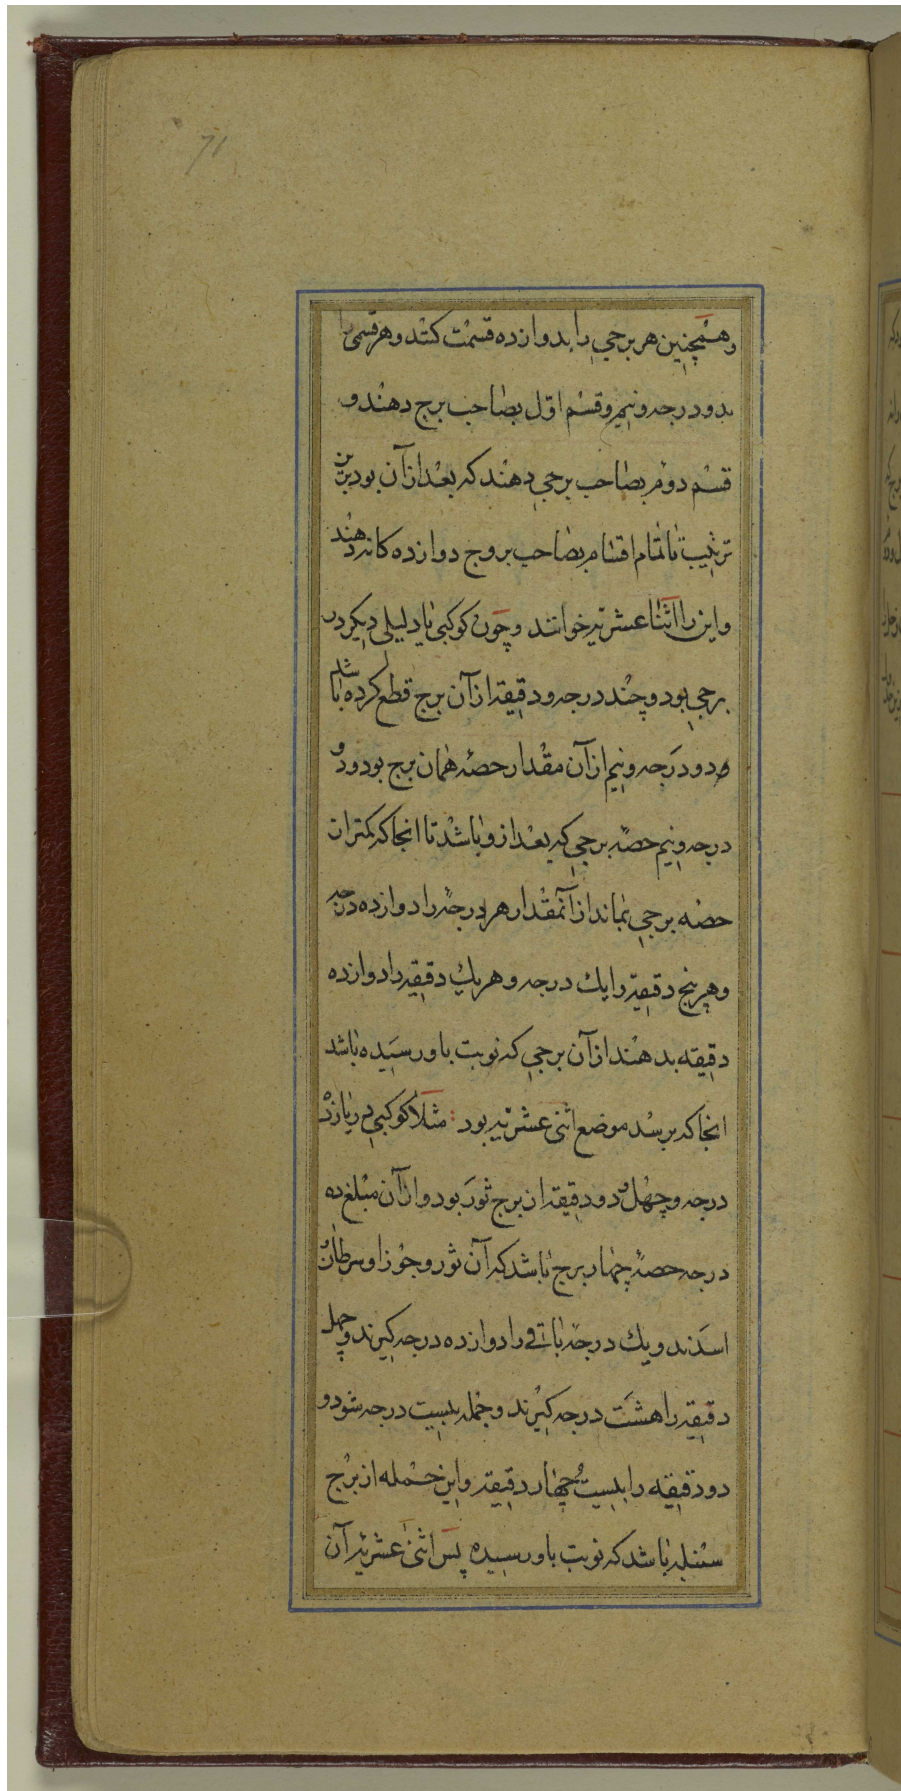 71
وهمچنین هر برجی را بدوازده قسمت کنند وهر قسمی را
بدو درجه ونیم وقسم اوّل بصاحب برج دهند و
قسم دوم بصاحب برجی دهند که بعد از آن بود برین
ترتیب تا تمام اقسام بصاحب بروج دوازده کانه دهند
واین را اثنا عشریه خوانند وچون کوکبی یا دلیلی دیکر در
برجی بود وچند درجه ودقیقه از آن برج قطع کرده باشد
هر دو درجه ونیم از آن مقدار حصهٔ همان برج بود ودو
درجه ونیم حصهٔ برجی که بعد ازو باشد تا انجا که کمتر از
حصه برجی بماند از آنمقدار هر درجهٔ را دوازده درجه
وهر پنج دقیقه را یك درجه وهر یك دقیقه را دوازده
دقیقه بدهند از آن برجی که نوبت باو رسیده باشد
انجا که برسد موضع اثنی عشریه بود : مثلا کوکبی در یازده
درجه وچهل و دو دقیقه از برج ثور بود واز آن مبلغ ده
درجه حصهٔ چهار برج باشد که آن ثور وجوزا وسرطان و
اسدند ویك درجه باقی را دوازده درجه کیرند وچهل
دقیقه را هشت درجه کیرند وجمله بیست درجه شود و
دو دقیقه را بیست و چهار دقیقه واین جمله از برج
سنبله باشد که نوبت باو رسیده پس اثنی عشریه آن